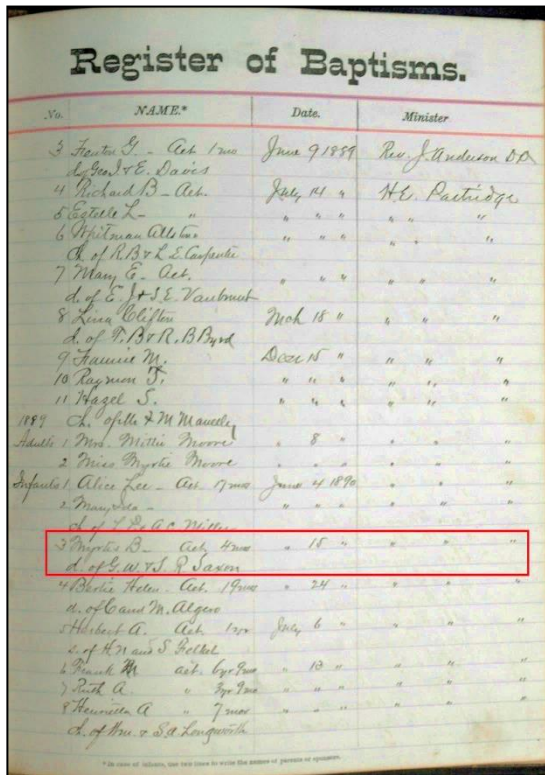 Register of Baptisms.
No. NAME.* Date. Minister
3 Fenton G. - Act. 1 mo June 9 1889 Rev. J. Anderson DD
d. Geo. J & E. Davis
4 Richard B - Act. July 14 " H.E. Partridge
5 Estelle L - " " " " " "
6 Whitman Allston " " " " " "
Ch. of R.B & L.E. Carpenter
7 Mary E. Act. " " " " " "
d. of E. J & S. E. Vanbrunt
8 Lina Clifton Mch 18 " " " "
d. of T. B & R. B Byrd
9 Fannie M. Dec 15 " " " "
10 Raymon T. " " " " " "
11 Hazel S. " " " " " "
1889 Ch. of & M
Adults 1 Mrs. Mittie Moore " 8 " " " "
2 Miss Myrtie Moore " " " " " "
Infants 1 Alice Lee - Act. 17 mos June 4 1890 " " "
2 Mary Ida - " " " " " "
Ch of A.C. Miller
3 Myrtis B - Act. 4 mos " 15 " " " "
d. of G. W & S. R Saxon
4 Bertie Helen - Act. 19 mos " 24 " " " "
d. of C and M. Algero
5 Herbert A. Act. 1 yr July 6 " " " "
s. of H N and S. Felkel
6 Frank M act. 6 yr 9 mo " 13 " " " "
7 Ruth A. " 3 yr 9 mo " " " " " "
8 Henrietta A " 7 mos " " " " " "
Ch. of Wm. & S.A. Longworth
* In case of infants, use two lines to write the names of parents or sponsors.